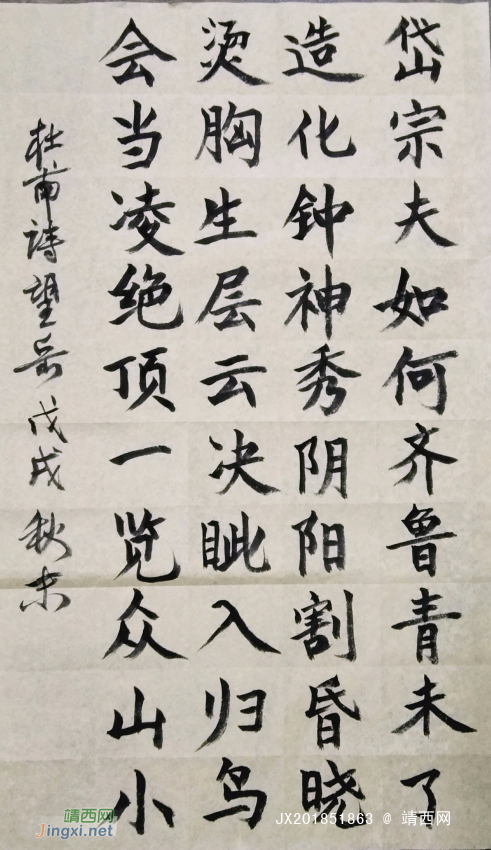 岱宗夫如何齐鲁青未了
造化钟神秀阴阳割昏晓
烫胸生层云决眦入归鸟
会当凌绝顶一览众山小
杜甫詩望岳戊戌秋末
靖西网
Jingxi.net
JX201851863 @ 靖西网